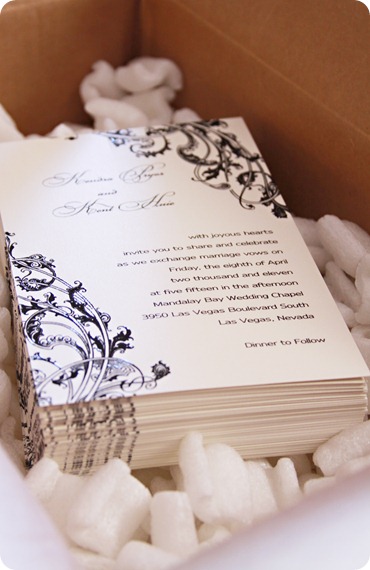 Kendra
and
Kent
with joyous hearts
invite you to share and celebrate
as we exchange marriage vows on
Friday, the eighth of April
two thousand and eleven
at five fifteen in the afternoon
Mandalay Bay Wedding Chapel
3950 Las Vegas Boulevard South
Las Vegas, Nevada
Dinner to Follow